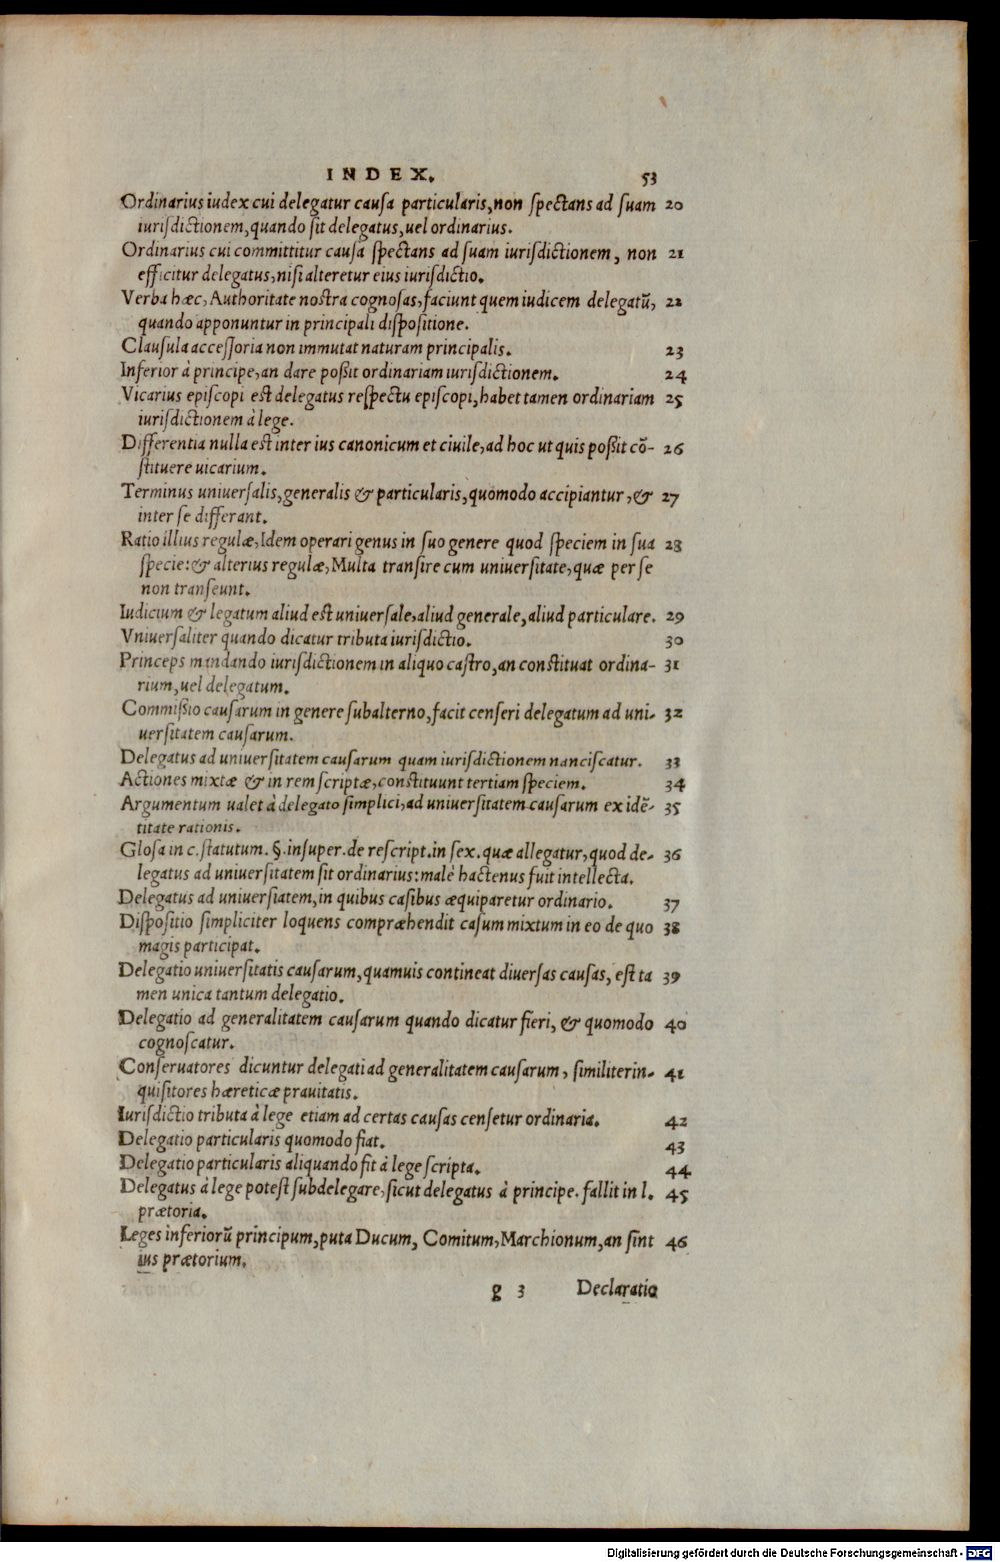 INDEX. 53
Ordinarius iudex cui delegatur causa particularis, non spectans ad suam 20
iurisdictionem, quando sit delegatus, uel ordinarius.
Ordinarius cui committitur causa spectans ad suam iurisdictionem, non 21
efficitur delegatus, nisi alteretur eius iurisdictio.
Verba hæc, Authoritate nostra cognosas, faciunt quem iudicem delegatũ, 22
quando apponuntur in principali dispositione.
Clausula accessoria non immutat naturam principalis. 23
Inferior à principe, an dare poßit ordinariam iurisdictionem. 24
Vicarius episcopi est delegatus respectu episcopi, habet tamen ordinariam 25
iurisdictionem à lege.
Differentia nulla est inter ius canonicum et ciuile, ad hoc ut quis poßit cõ- 26
stituere uicarium.
Terminus uniuersalis, generalis & particularis, quomodo accipiantur, & 27
inter se differant.
Ratio illius regulæ, Idem operari genus in suo genere quod speciem in sua 28
specie: & alterius regulæ, Multa transire cum uniuersitate, quæ per se
non transeunt.
Iudicium & legatum aliud est uniuersale, aliud generale, aliud particulare. 29
Vniuersaliter quando dicatur tributa iurisdictio. 30
Princeps mandando iurisdictionem in aliquo castro, an constituat ordina- 31
rium, uel delegatum.
Commißio causarum in genere subalterno, facit censeri delegatum ad uni- 32
uersitatem causarum.
Delegatus ad uniuersitatem causarum quam iurisdictionem nanciscatur. 33
Actiones mixtæ & in rem scriptæ, constituunt tertiam speciem. 34
Argumentum ualet à delegato simplici, ad uniuersitatem causarum ex idẽ- 35
titate rationis.
Glosa in c. statutum. §. insuper. de rescript. in sex. quæ allegatur, quod de- 36
legatus ad uniuersitatem sit ordinarius: malè hactenus fuit intellecta.
Delegatus ad uniuersiatem, in quibus casibus æquiparetur ordinario. 37
Dispositio simpliciter loquens compræhendit casum mixtum in eo de quo 38
magis participat.
Delegatio uniuersitatis causarum, quamuis contineat diuersas causas, est ta 39
men unica tantum delegatio.
Delegatio ad generalitatem causarum quando dicatur fieri, & quomodo 40
cognoscatur.
Conseruatores dicuntur delegati ad generalitatem causarum, similiter in- 41
quisitores hæreticæ prauitatis.
Iurisdictio tributa à lege etiam ad certas causas censetur ordinaria. 42
Delegatio particularis quomodo fiat. 43
Delegatio particularis aliquando fit à lege scripta. 44
Delegatus à lege potest subdelegare, sicut delegatus à principe. fallit in l. 45
prætoria.
Leges inferiorũ principum, puta Ducum, Comitum, Marchionum, an sint 46
ius prætorium.
g 3 Declaratio
Digitalisierung gefördert durch die Deutsche Forschungsgemeinschaft - DFG